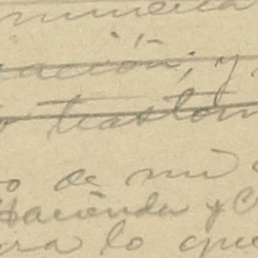 ración; y
trastor
o de mi
Hacienda y C
ra lo que